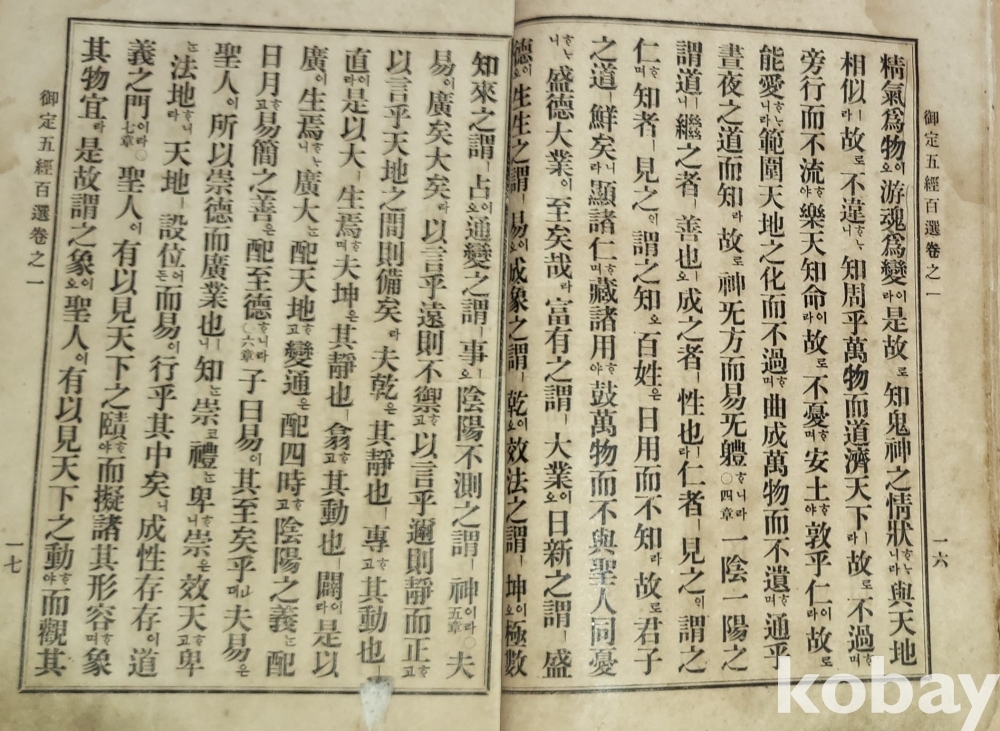 御定五經百選卷之一
一六
精氣爲物이오游魂爲變이라是故로知鬼神之情狀ᄒᆞᄂᆞ니라與天地
相似ㅣ라故로不違ㅣ니知周乎萬物而道濟天下ㅣ라故로不過ᄒᆞ며
旁行而不流ᄒᆞ야樂天知命이라故로不憂ᄒᆞ며安土ᄒᆞ야敦乎仁이라故로
能愛ᄒᆞᄂᆞ니라範圍天地之化而不過ᄒᆞ며曲成萬物而不遺ᄒᆞ며通乎
晝夜之道而知라故로神无方而易无軆ᄒᆞ니라○四章一陰一陽之
謂道ㅣ니繼之者ㅣ善也ㅣ오成之者ㅣ性也ㅣ라仁者ㅣ見之이謂之
仁ᄒᆞ며知者ㅣ見之이謂之知오百姓은日用而不知라故로君子
之道ㅣ鮮矣라顯諸仁ᄒᆞ며藏諸用ᄒᆞ야鼓萬物而不與聖人同憂
ᄒᆞᄂᆞ니盛德大業이至矣哉라富有之謂ㅣ大業이오日新之謂ㅣ盛
德이오生生之謂ㅣ易이오成象之謂ㅣ乾이오效法之謂ㅣ坤이오極數
知來之謂ㅣ占이오通變之謂ㅣ事ㅣ오陰陽不測之謂ㅣ神이라○五章夫
易이廣矣大矣라以言乎遠則不禦ᄒᆞ고以言乎邇則靜而正ᄒᆞ고
以言乎天地之間則備矣라夫乾은其靜也ㅣ專ᄒᆞ고其動也ㅣ
直이라是以大ㅣ生焉ᄒᆞ며夫坤은其靜也ㅣ翕ᄒᆞ고其動也ㅣ闢이라是以
廣이生焉ᄒᆞᄂᆞ니廣大ᄂᆞᆫ配天地ᄒᆞ고變通은配四時ᄒᆞ고陰陽之義ᄂᆞᆫ配
日月ᄒᆞ고易簡之善은配至德ᄒᆞ니라○六章子曰易이其至矣乎ㄴ뎌夫易은
聖人이所以崇德而廣業也ㅣ니知ᄂᆞᆫ崇코禮ᄂᆞᆫ卑ᄒᆞ니崇은效天ᄒᆞ고卑
ᄂᆞᆫ法地ᄒᆞ니라天地ㅣ設位어든而易이行乎其中矣니成性存存이道
義之門이라○七章聖人이有以見天下之賾ᄒᆞ야而擬諸其形容ᄒᆞ며象
其物宜라是故謂之象이오聖人이有以見天下之動ᄒᆞ야而觀其
御定五經百選卷之一
一七
kobay